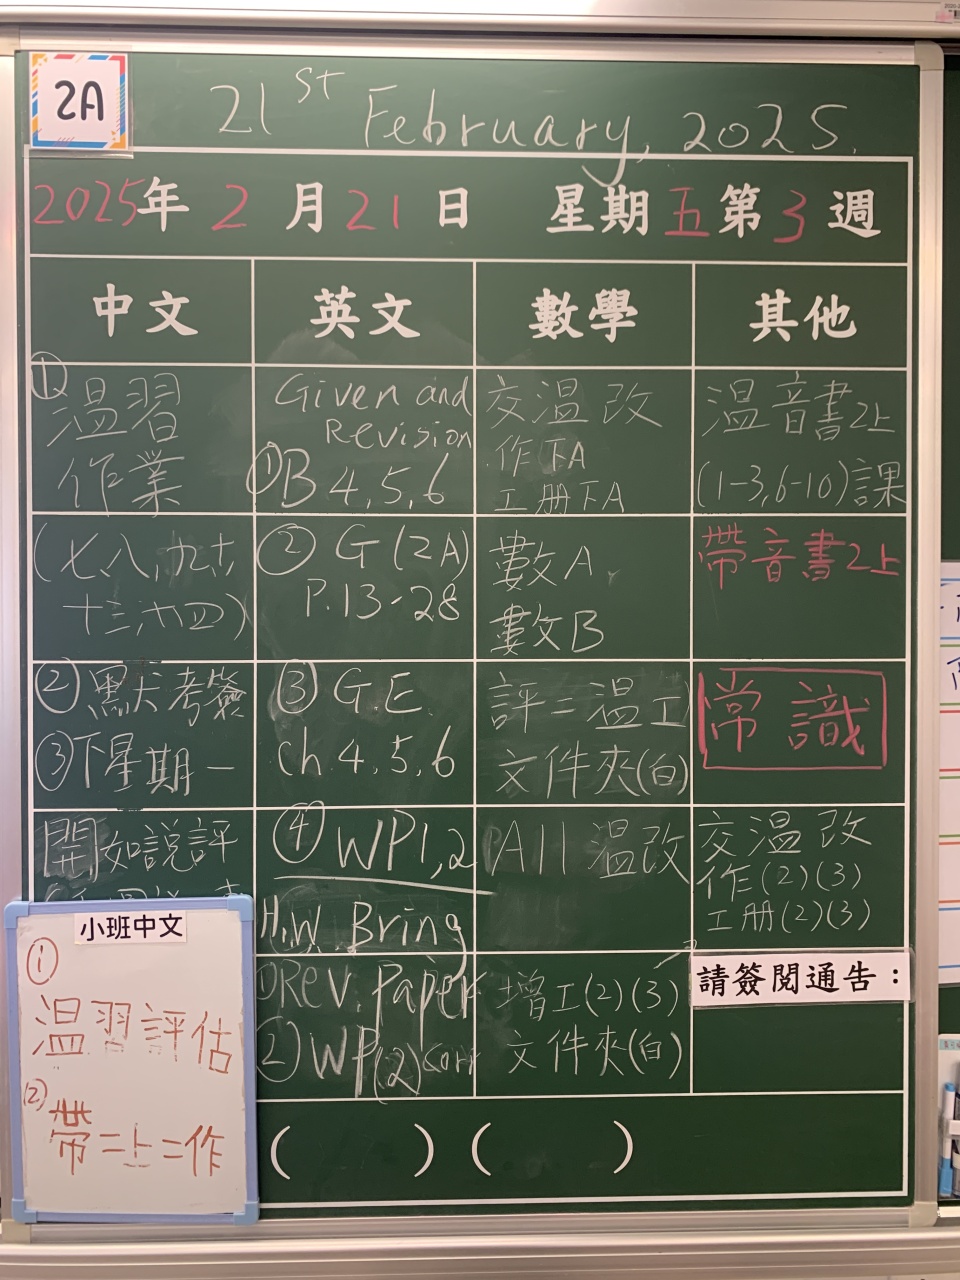 2A
21st February, 2025.
2025年2月21日 星期五第3週
中文
英文
數學
其他
① 温習
作業
(七、八、九、
十三、十四)
② 默 考簽
③ 下星期一
開如說評
Given and
Revision
① B 4, 5, 6
② G (2A)
P. 13-28
③ G.E.
Ch. 4, 5, 6
④ WP1, 2
H.W. Bring
① Rev. Paper
② WP(2) corr
交温改
作下A
工册下A
數A
數B
評三温工
文件夾(白)
All 温改
增工(2)(3)
文件夾(白)
温音書2上
(1-3, 6-10)課
帶音書2上
常識
交温改
作(2)(3)
工册(2)(3)
請簽閱通告:
( ) ( )
小班中文
①
温習評估
(2)
帶二上二作